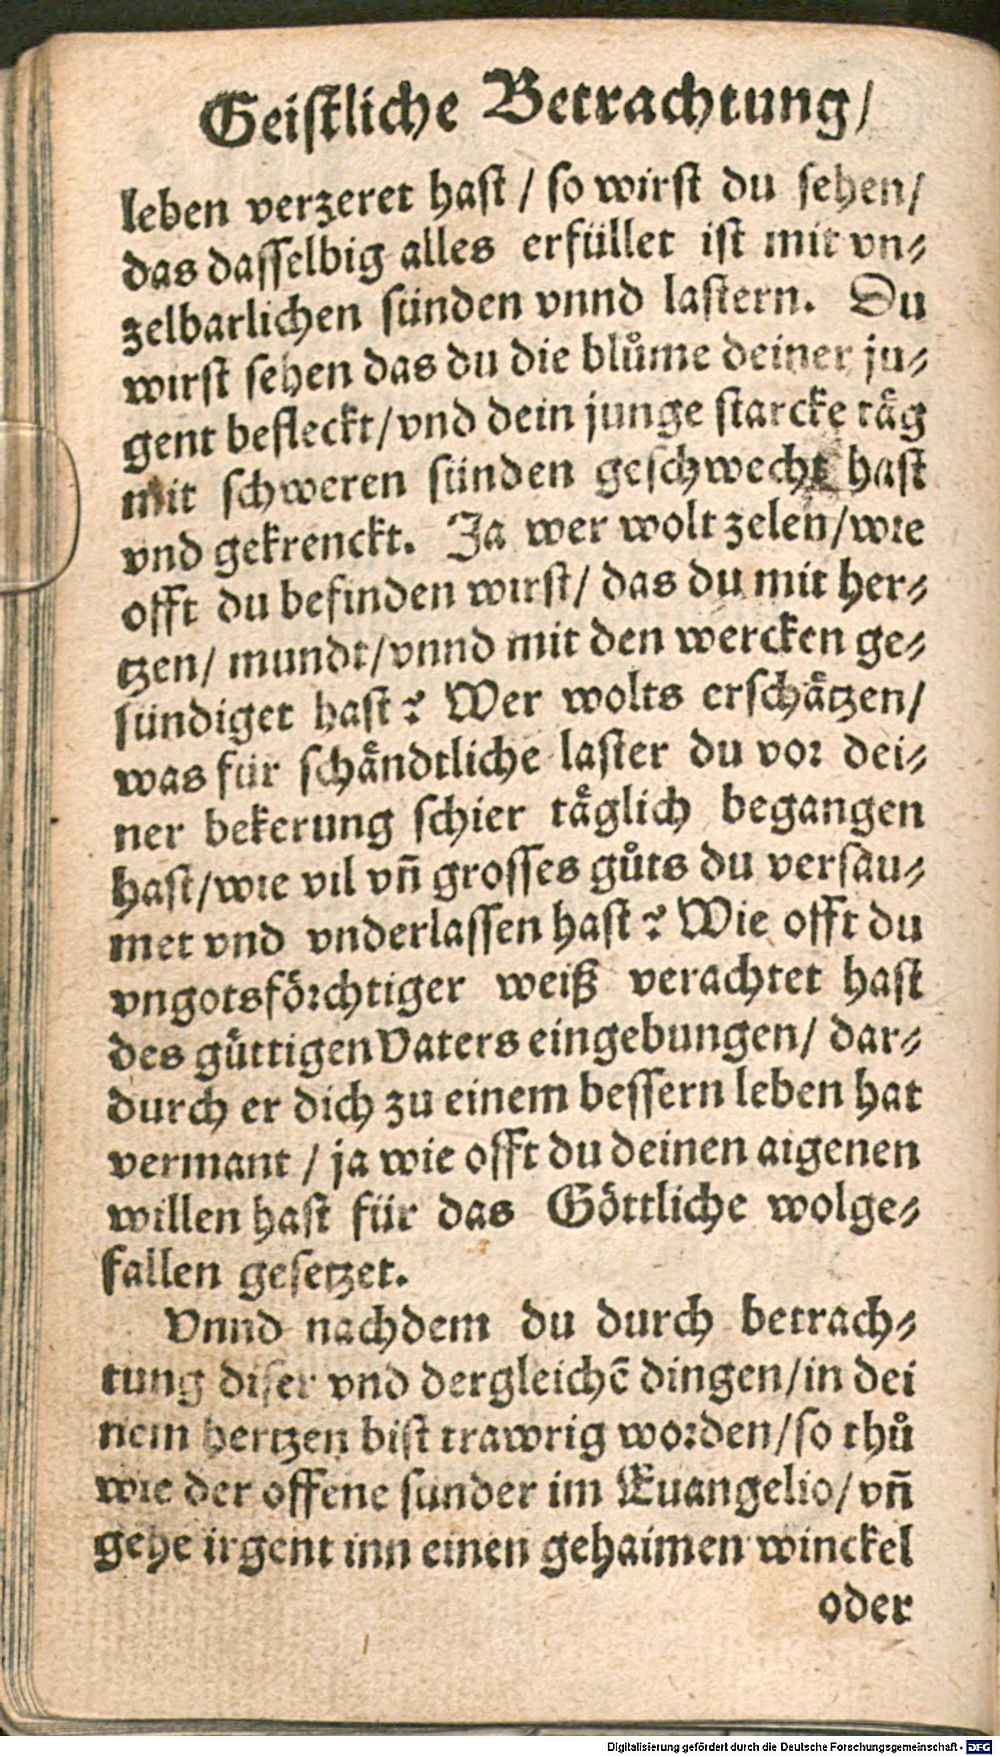 Geistliche Betrachtung/
leben verzeret hast / so wirst du sehen/
das dasselbig alles erfüllet ist mit vn⸗
zelbarlichen sünden vnnd lastern. Du
wirst sehen das du die blůme deiner ju⸗
gent befleckt/vnd dein junge starcke täg
mit schweren sünden geschwecht hast
vnd gekrenckt. Ja wer wolt zelen/wie
offt du befinden wirst/ das du mit her⸗
tzen/ mundt/vnnd mit den wercken ge⸗
sündiget hast? Wer wolts erschätzen/
was für schändtliche laster du vor dei⸗
ner bekerung schier täglich begangen
hast/wie vil vñ grosses gůts du versau⸗
met vnd vnderlassen hast? Wie offt du
vngotsförchtiger weiß verachtet hast
des güttigen Vaters eingebungen/ dar⸗
durch er dich zu einem bessern leben hat
vermant / ja wie offt du deinen aigenen
willen hast für das Göttliche wolge⸗
fallen gesetzet.
Vnnd nachdem du durch betrach⸗
tung diser vnd dergleichē dingen/in dei
nem hertzen bist trawrig worden/so thů
wie der offene sunder im Euangelio/ vñ
gehe irgent inn einen gehaimen winckel
oder
Digitalisierung gefördert durch die Deutsche Forschungsgemeinschaft - DFG